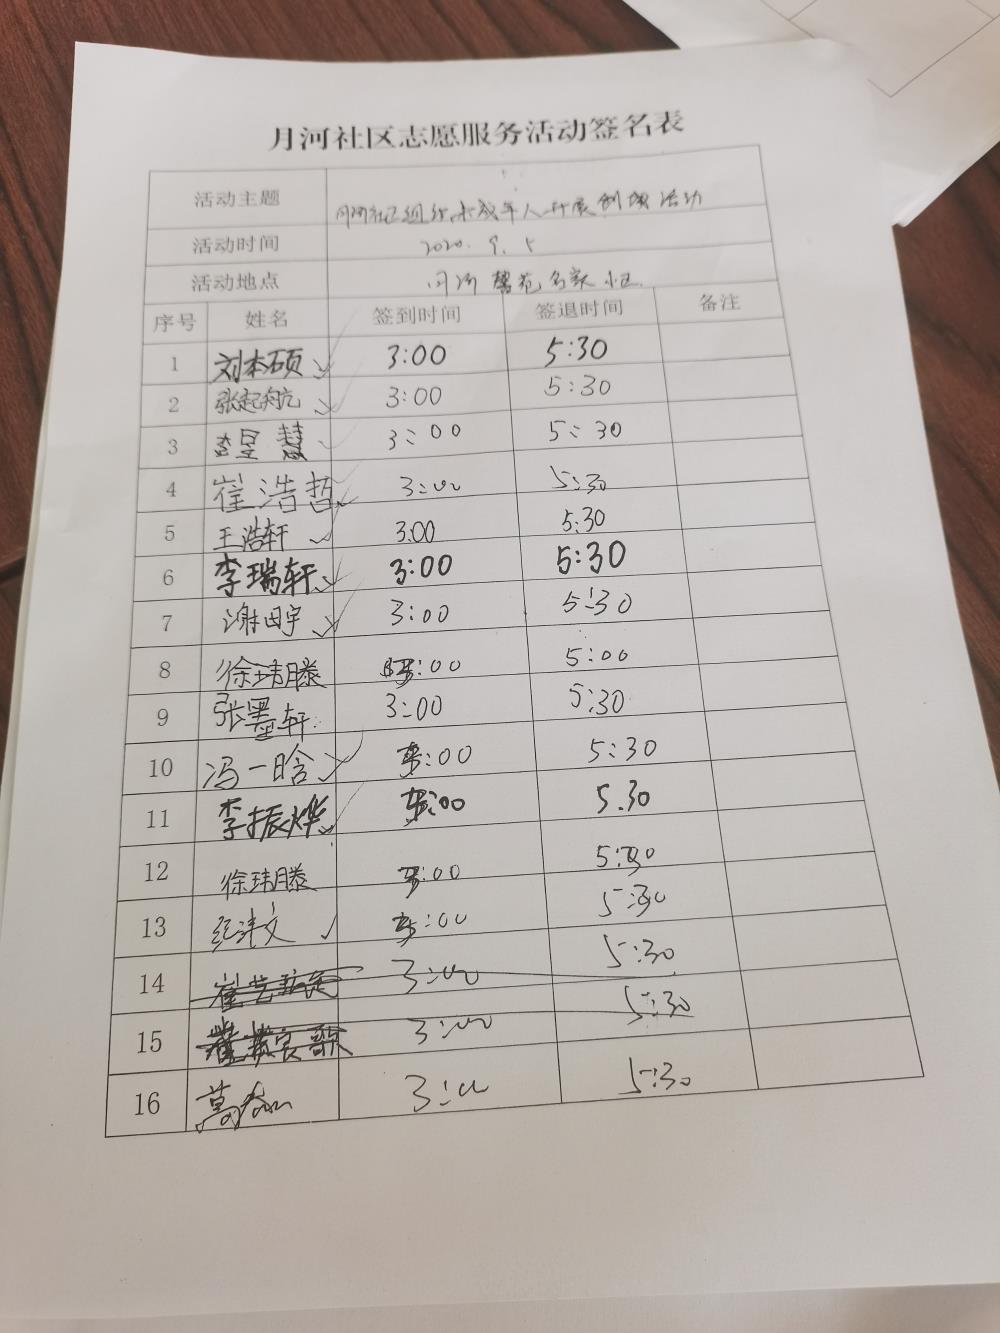 月河社区志愿服务活动签名表
活动主题 月河社区组织未成年人开展创城活动
活动时间 2020.9.5
活动地点 月河馨苑名家小区
序号 姓名 签到时间 签退时间 备注
1 刘本硕 ✓ 3:00 5:30
2 张起航 ✓ 3:00 5:30
3 李昱慧 ✓ 3:00 5:30
4 崔浩哲 ✓ 3:00 5:30
5 王浩轩 ✓ 3:00 5:30
6 李瑞轩 ✓ 3:00 5:30
7 谢田宇 ✓ 3:00 5:30
8 徐玮滕 3:00 5:00
9 张墨轩 3:00 5:30
10 冯一晗 ✓ 3:00 5:30
11 李振烨 ✓ 3:00 5.30
12 徐玮滕 3:00 5:30
13 纪沣文 ✓ 3:00 5:30
14 3:00 5:30
15 3:00 5:30
16 3:00 5:30